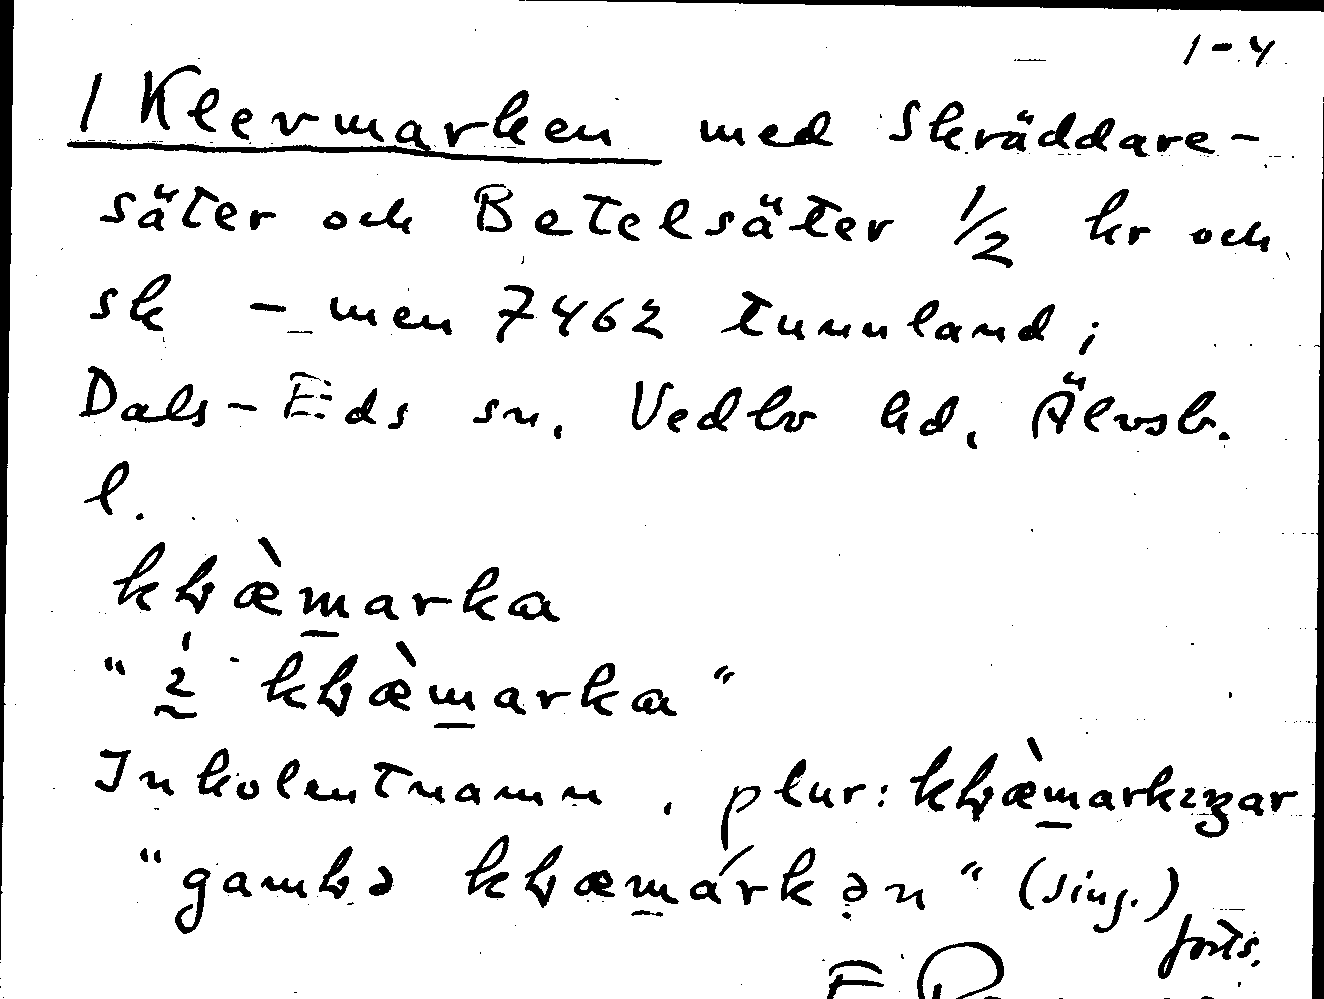 1-4
1 Klevmarken med Skräddare-
säter och Betelsäter 1/2 kr och
sk - men 7462 tunnland;
Dals-Eds sn. Vedbo hd. Älvsb.
l.
kƚæ̀m̲arka
"ı̰́ kƚæ̀m̲arka"
Inkolentnamn, plur: kƚæ̀m̲arkıŋar
"gamƚə kƚæm̲árkən" (sing.)
forts.